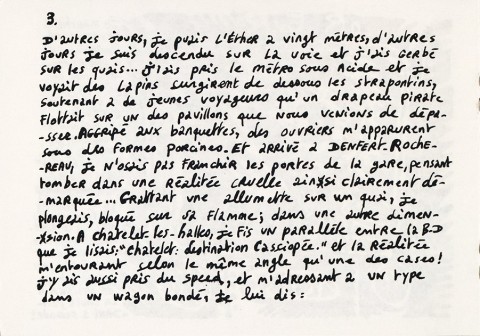 3.
D'autres jours, je puais l'éther à vingt mètres, d'autres
jours je suis descendu sur la voie et j'ais gerbé
sur les quais... j'ais pris le métro sous acide et je
voyait des lapins surgirent de dessous les strapontins,
soutenant à de jeunes voyageurs qu'un drapeau pirate
flottait sur un des pavillons que nous venions de dépa-
-sser. Aggripé aux banquettes, des ouvriers m'apparurent
sous des formes porcines. Et arrivé à DENFERT-ROCHE-
-REAU, je n'osais pas franchir les portes de la gare, pensant
tomber dans une réalitée cruelle ainsi clairement dé-
-marquée... Grattant une allumette sur un quai, je
plongeais, bloqué sur sa flamme; dans une autre dimen-
-sion. A chatelet-les-halles, je fis un parallèle entre la B-D
que je lisais, "chatelet: destination Cassiopée." et la réalitée
m'entourant selon le même angle qu'une des cases!
j'y ais aussi pris du speed, et m'adressant à un type
dans un wagon bondé, je lui dis: